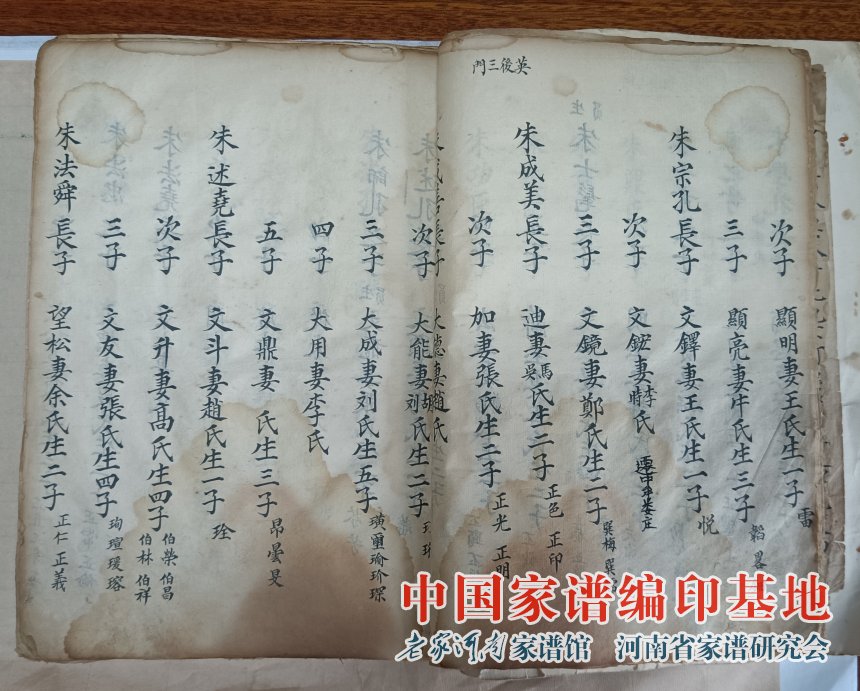 英後三門
次子 顯明妻王氏生一子 雷
三子 顯亮妻牛氏生三子 韜 畧
朱宗孔長子 文鐸妻王氏生一子 悅
次子 文 妻李 時氏
三子 文鏡妻鄭氏生二子 巽梅 巽
朱成美長子 迪妻馬 吳氏生二子 正色 正印
次子 加妻張氏生二子 正光 正明
長子 大德妻趙氏
次子 大能妻胡 刘氏生二子
三子 大成妻刘氏生五子 璜 璽 瑜 玠 琛
四子 大用妻李氏
五子 文鼎妻 氏生三子 昂 曇 旻
朱述堯長子 文斗妻趙氏生一子 玹
次子 文升妻高氏生四子 伯榮 伯昌 伯林 伯祥
三子 文友妻張氏生四子 珣 瑄 瑗 瑢
朱法舜長子 望松妻余氏生二子 正仁 正義
中国家谱编印基地
老家河南家谱馆 河南省家谱研究会